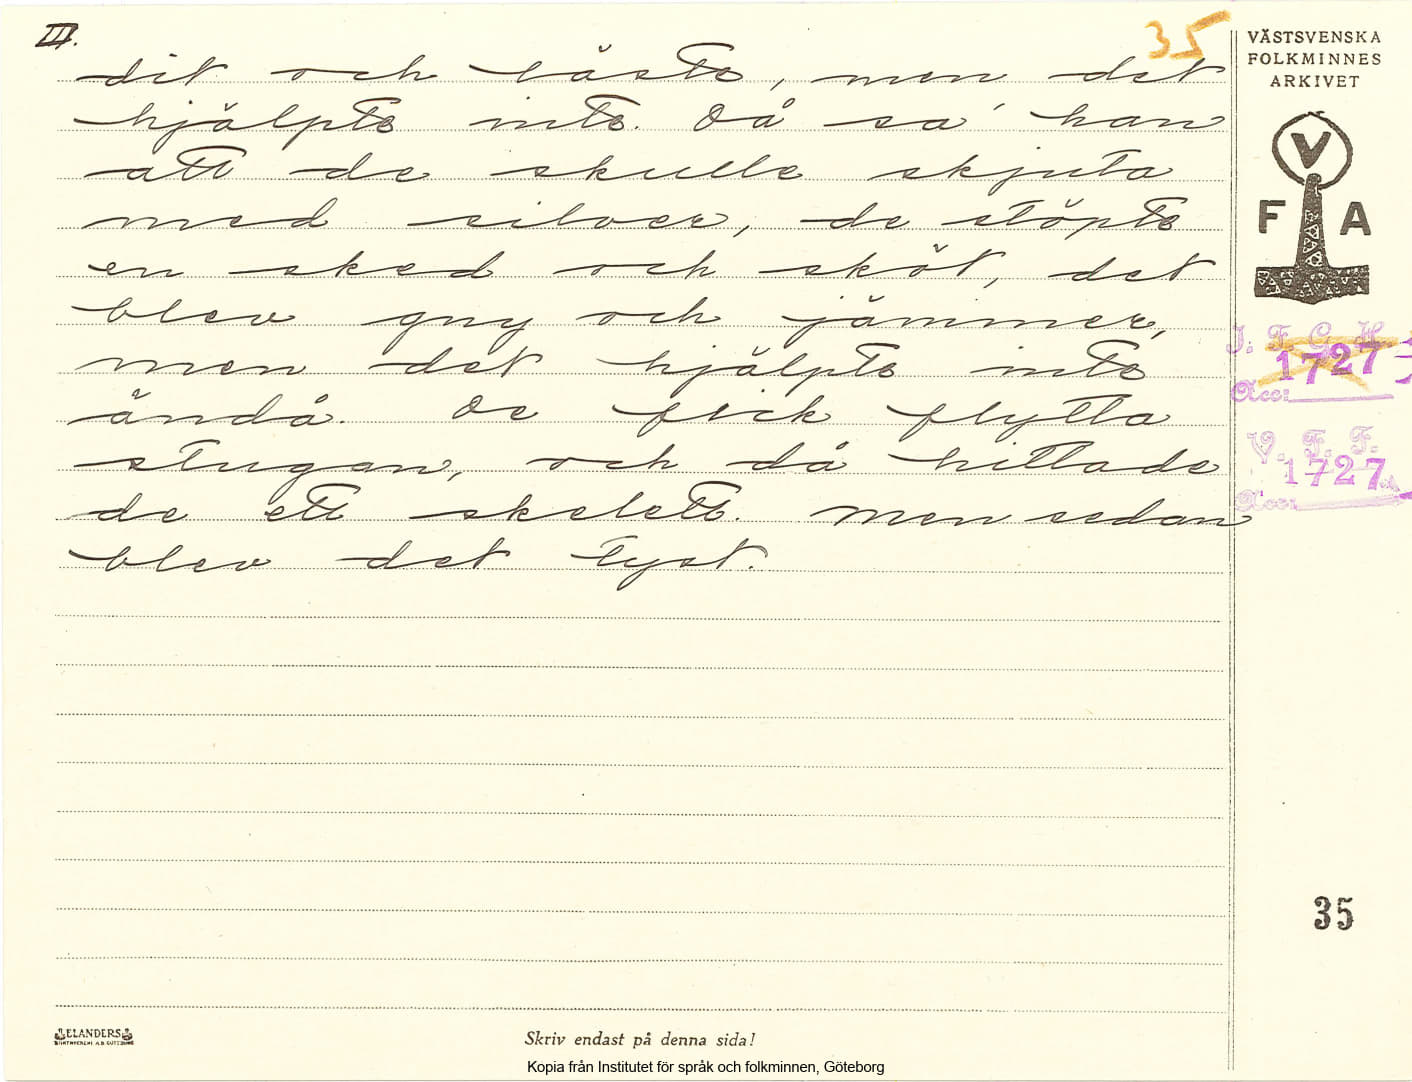 III.
35
dit och läste, men det
hjälpte inte. Då sa' han
att de skulle skjuta
med silver, de stöpte
en sked och sköt, det
blev gny och jämmer,
men det hjälpte inte
ändå. De fick flytta
stugan, och då hittade
de ett skelett. Men sedan
blev det tyst.
VÄSTSVENSKA
FOLKMINNES
ARKIVET
V
F A
I. F. G. H.
1727
Acc:
V. F. F.
1727
Acc:
35
ELANDERS
Skriv endast på denna sida!
Kopia från Institutet för språk och folkminnen, Göteborg